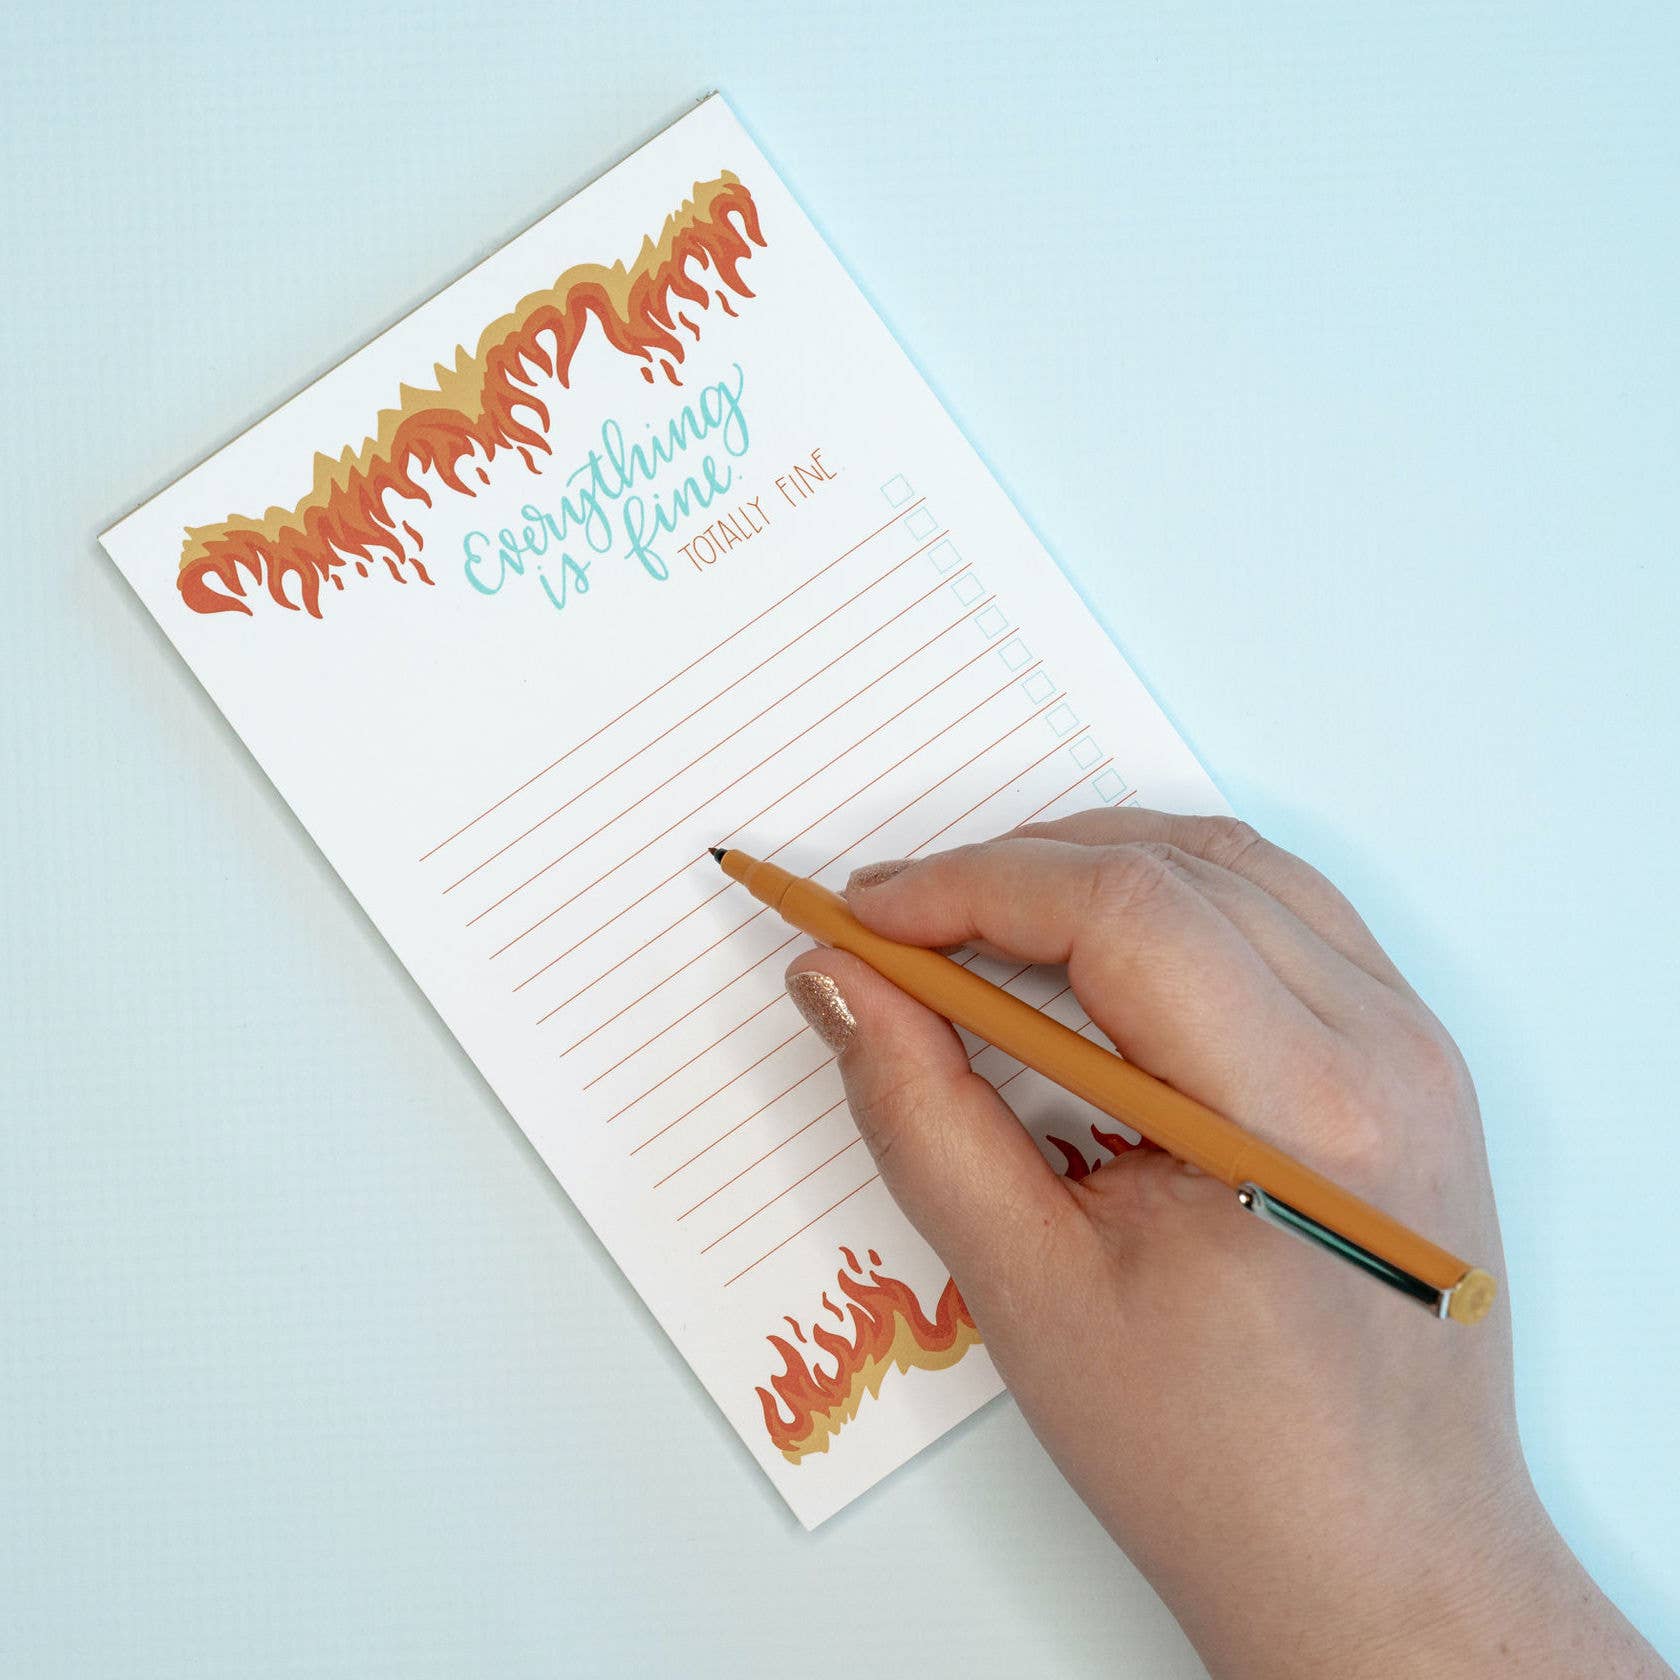 Everything
is fine.
TOTALLY FINE.